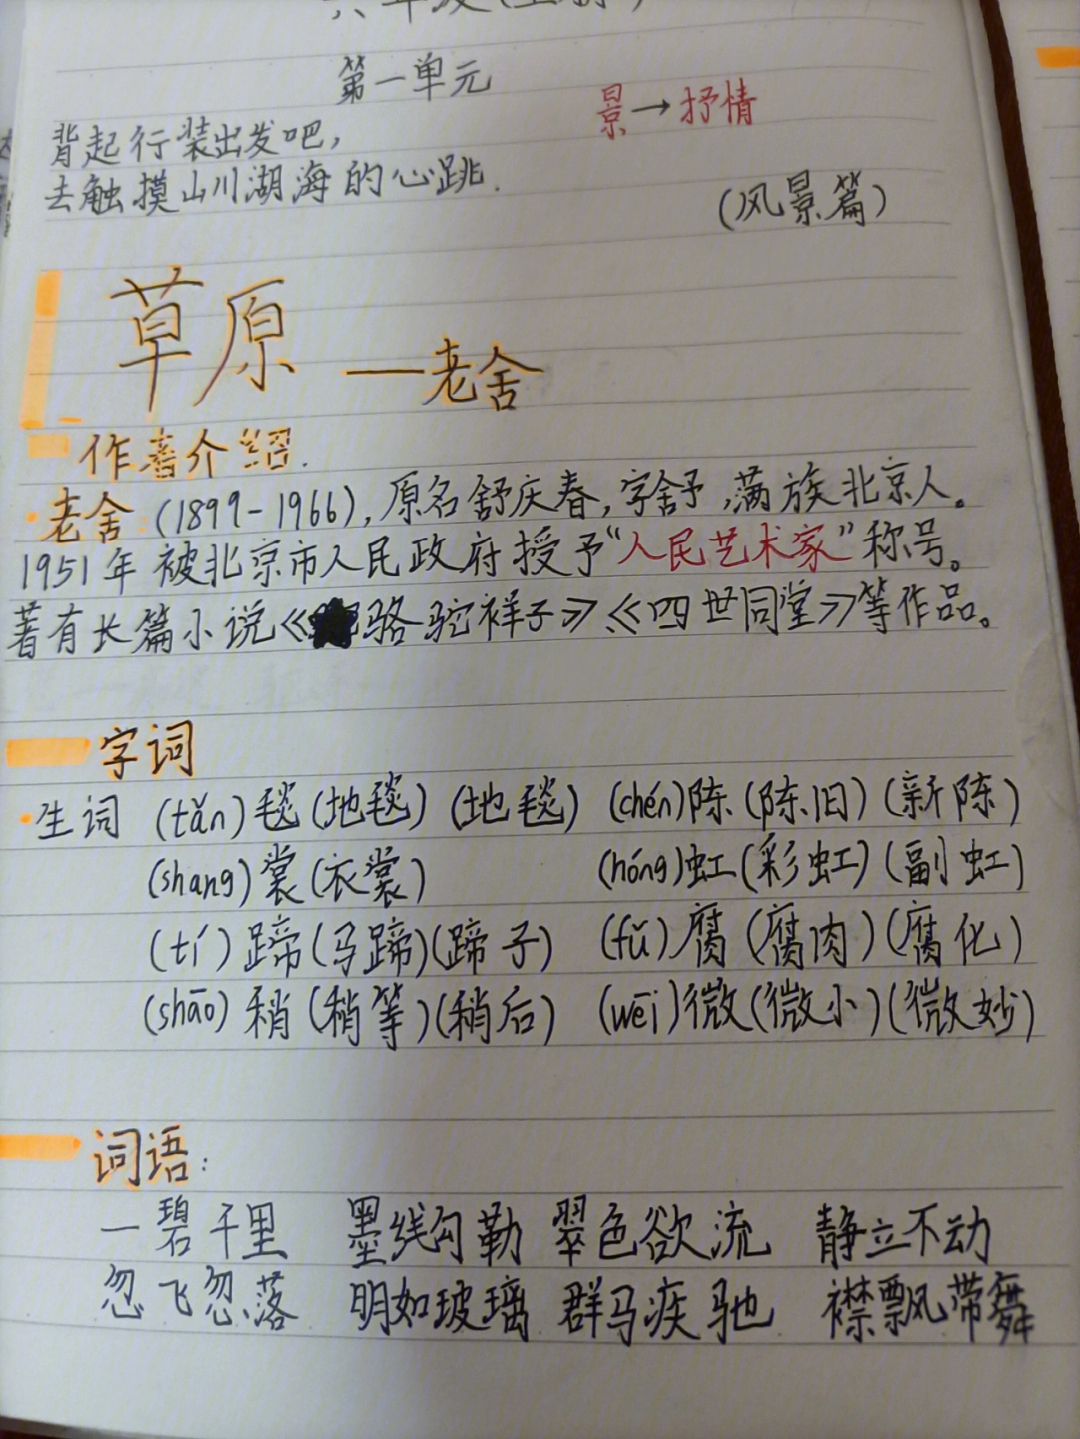 第一单元
景→抒情
背起行装出发吧,
去触摸山川湖海的心跳.
(风景篇)
草原 —老舍
作者介绍.
·老舍(1899-1966),原名舒庆春,字舍予,满族北京人。
1951年被北京市人民政府授予“人民艺术家”称号。
著有长篇小说《骆驼祥子》《四世同堂》等作品。
字词
·生词 (tǎn)毯(地毯)(地毯) (chén)陈(陈旧)(新陈)
(shang)裳(衣裳) (hóng)虹(彩虹)(副虹)
(tí)蹄(马蹄)(蹄子) (fǔ)腐(腐肉)(腐化)
(shāo)稍(稍等)(稍后) (wēi)微(微小)(微妙)
词语:
一碧千里 墨线勾勒 翠色欲流 静立不动
忽飞忽落 明如玻璃 群马疾驰 襟飘带舞